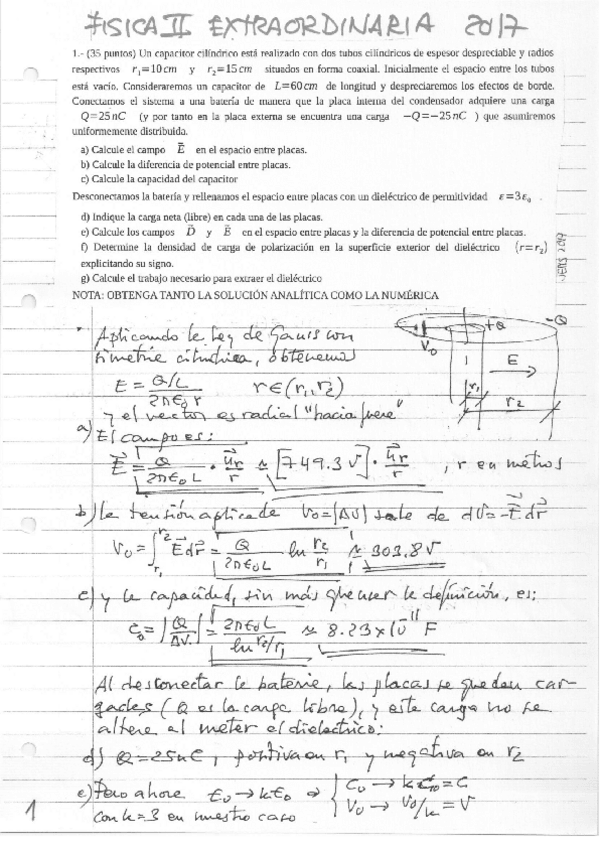 FISICA II EXTRAORDINARIA 2017
1.- (35 puntos) Un capacitor cilíndrico está realizado con dos tubos cilíndricos de espesor despreciable y radios
respectivos r₁=10cm y r₂=15cm situados en forma coaxial. Inicialmente el espacio entre los tubos
está vacío. Consideraremos un capacitor de L=60cm de longitud y despreciaremos los efectos de borde.
Conectamos el sistema a una batería de manera que la placa interna del condensador adquiere una carga
Q=25nC (y por tanto en la placa externa se encuentra una carga −Q=−25nC ) que asumiremos
uniformemente distribuida.
a) Calcule el campo E⃗ en el espacio entre placas.
b) Calcule la diferencia de potencial entre placas.
c) Calcule la capacidad del capacitor
Desconectamos la batería y rellenamos el espacio entre placas con un dieléctrico de permitividad ε=3ε₀
d) Indique la carga neta (libre) en cada una de las placas.
e) Calcule los campos D⃗ y E⃗ en el espacio entre placas y la diferencia de potencial entre placas.
f) Determine la densidad de carga de polarización en la superficie exterior del dieléctrico (r=r₂)
explicitando su signo.
g) Calcule el trabajo necesario para extraer el dieléctrico
NOTA: OBTENGA TANTO LA SOLUCIÓN ANALÍTICA COMO LA NUMÉRICA
Aplicando la ley de Gauss con
simetría cilíndrica, obtenemos
+Q −Q
V₀ E
r₁ r₂
E = Q/L / 2πε₀ r r∈(r₁,r₂)
y el vector es radial "hacia fuera"
a) El campo es:
E⃗ = Q / 2πε₀L · u⃗r / r ≈ [749.3 V] · u⃗r / r , r en metros
b) la tensión aplicada V₀=|ΔV| sale de dV=−E⃗dr⃗
V₀ = ∫r₁^r₂ E⃗dr⃗ = Q / 2πε₀L ln r₂/r₁ ≈ 303.8 V
c) y la capacidad, sin más que usar la definición, es:
C₀ = |Q/ΔV| = 2πε₀L / ln r₂/r₁ ≈ 8.23×10⁻¹¹ F
Al desconectar la batería, las placas se quedan car-
gadas (Q es la carga libre), y esta carga no se
altera al meter el dieléctrico:
d) Q=25nC, positiva en r₁ y negativa en r₂
e) Pero ahora ε₀ → kε₀ ⇒ { C₀ → kC₀ = C
V₀ → V₀/k = V
con k=3 en nuestro caso
1